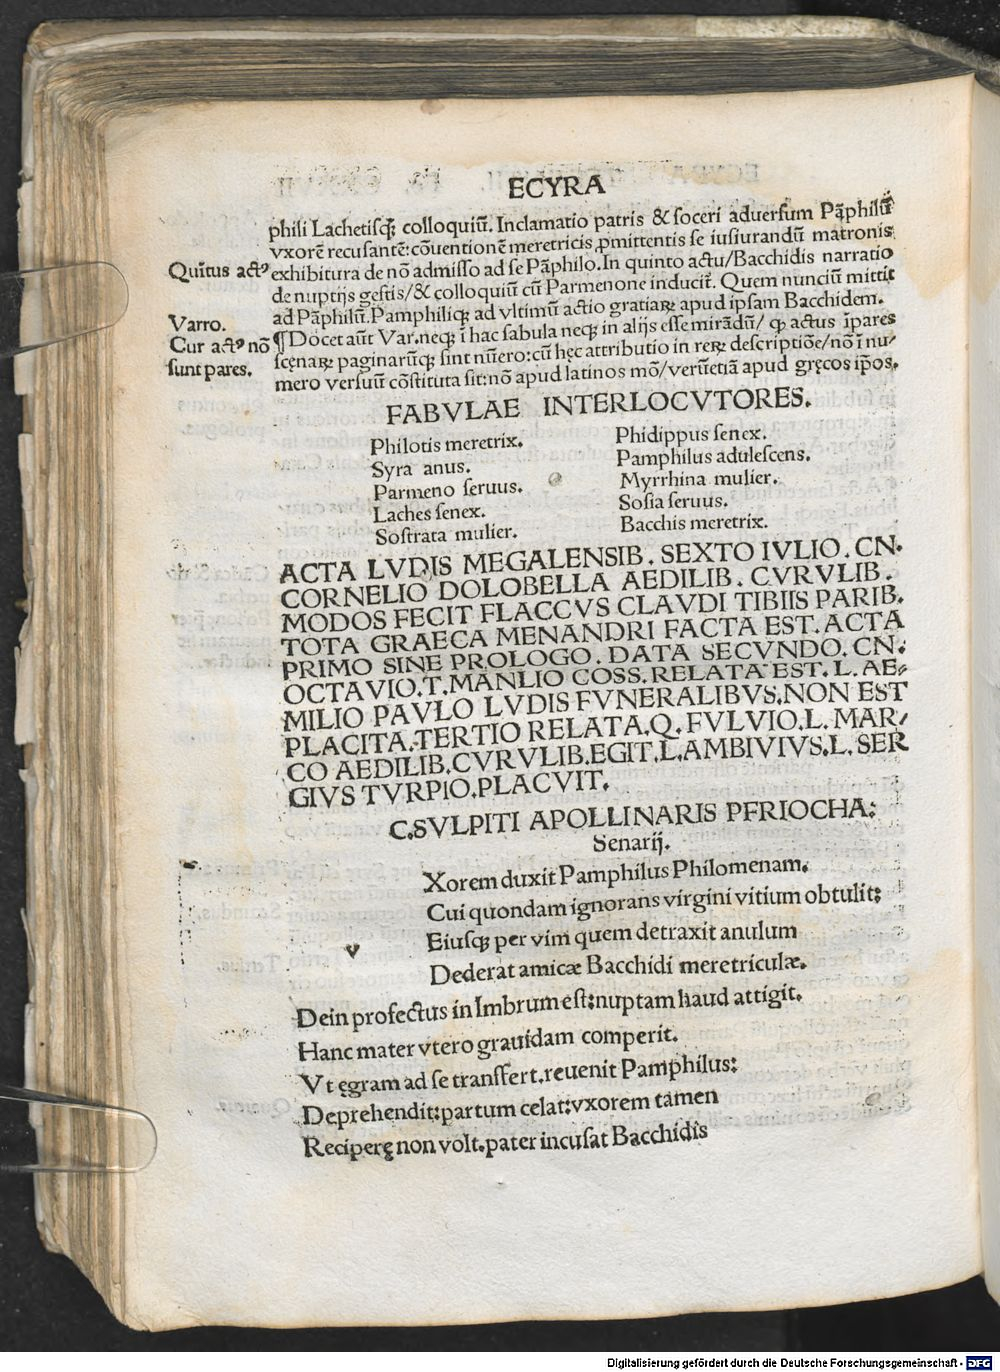 ECYRA
phili Lachetisq; colloquiū. Inclamatio patris & soceri aduersum Pāphilū
vxorē recusantē: cōuentionē meretricis ꝓmittentis se iusiurandū matronis
Quītus actꝰ exhibitura de nō admisso ad se Pāphilo. In quinto actu/Bacchidis narratio
de nuptijs gestis/& colloquiū cū Parmenone inducit̄. Quem nunciū mittit
ad Pāphilū. Pamphiliq; ad vltimū actio gratiaꝝ apud ipsam Bacchidem.
Varro.
¶Docet aūt Var. neq; ī hac fabula neq; in alijs esse mirādū/ ꝙ actus īpares
Cur actꝰ nō
scęnaꝝ paginarūq; sint nūero: cū hęc attributio in reꝝ descriptiōe/nō ī nu/
sunt pares.
mero versuū cōstituta sit: nō apud latinos mō/verūetiā apud gręcos ip̄os.
FABVLAE INTERLOCVTORES.
Philotis meretrix.
Syra anus.
Parmeno seruus.
Laches senex.
Sostrata mulier.
Phidippus senex.
Pamphilus adulescens.
Myrrhina mulier.
Sosia seruus.
Bacchis meretrix.
ACTA LVDIS MEGALENSIB. SEXTO IVLIO. CN.
CORNELIO DOLOBELLA AEDILIB. CVRVLIB.
MODOS FECIT FLACCVS CLAVDI TIBIIS PARIB.
TOTA GRAECA MENANDRI FACTA EST. ACTA
PRIMO SINE PROLOGO. DATA SECVNDO. CN.
OCTAVIO. T. MANLIO COSS. RELATA EST. L. AE/
MILIO PAVLO LVDIS FVNERALIBVS. NON EST
PLACITA. TERTIO RELATA. Q. FVLVIO. L. MAR/
CO AEDILIB. CVRVLIB. EGIT. L. AMBIVIVS. L. SER
GIVS TVRPIO. PLACVIT.
C. SVLPITI APOLLINARIS PERIOCHA:
Senarij.
v Xorem duxit Pamphilus Philomenam.
Cui quondam ignorans virgini vitium obtulit:
Eiusq; per vim quem detraxit anulum
Dederat amicæ Bacchidi meretriculæ.
Dein profectus in Imbrum est: nuptam haud attigit.
Hanc mater vtero grauidam comperit.
Vt ęgram ad se transfert. reuenit Pamphilus:
Deprehendit: partum celat: vxorem tamen
Reciperę non volt. pater incusat Bacchidis
Digitalisierung gefördert durch die Deutsche Forschungsgemeinschaft - DFG